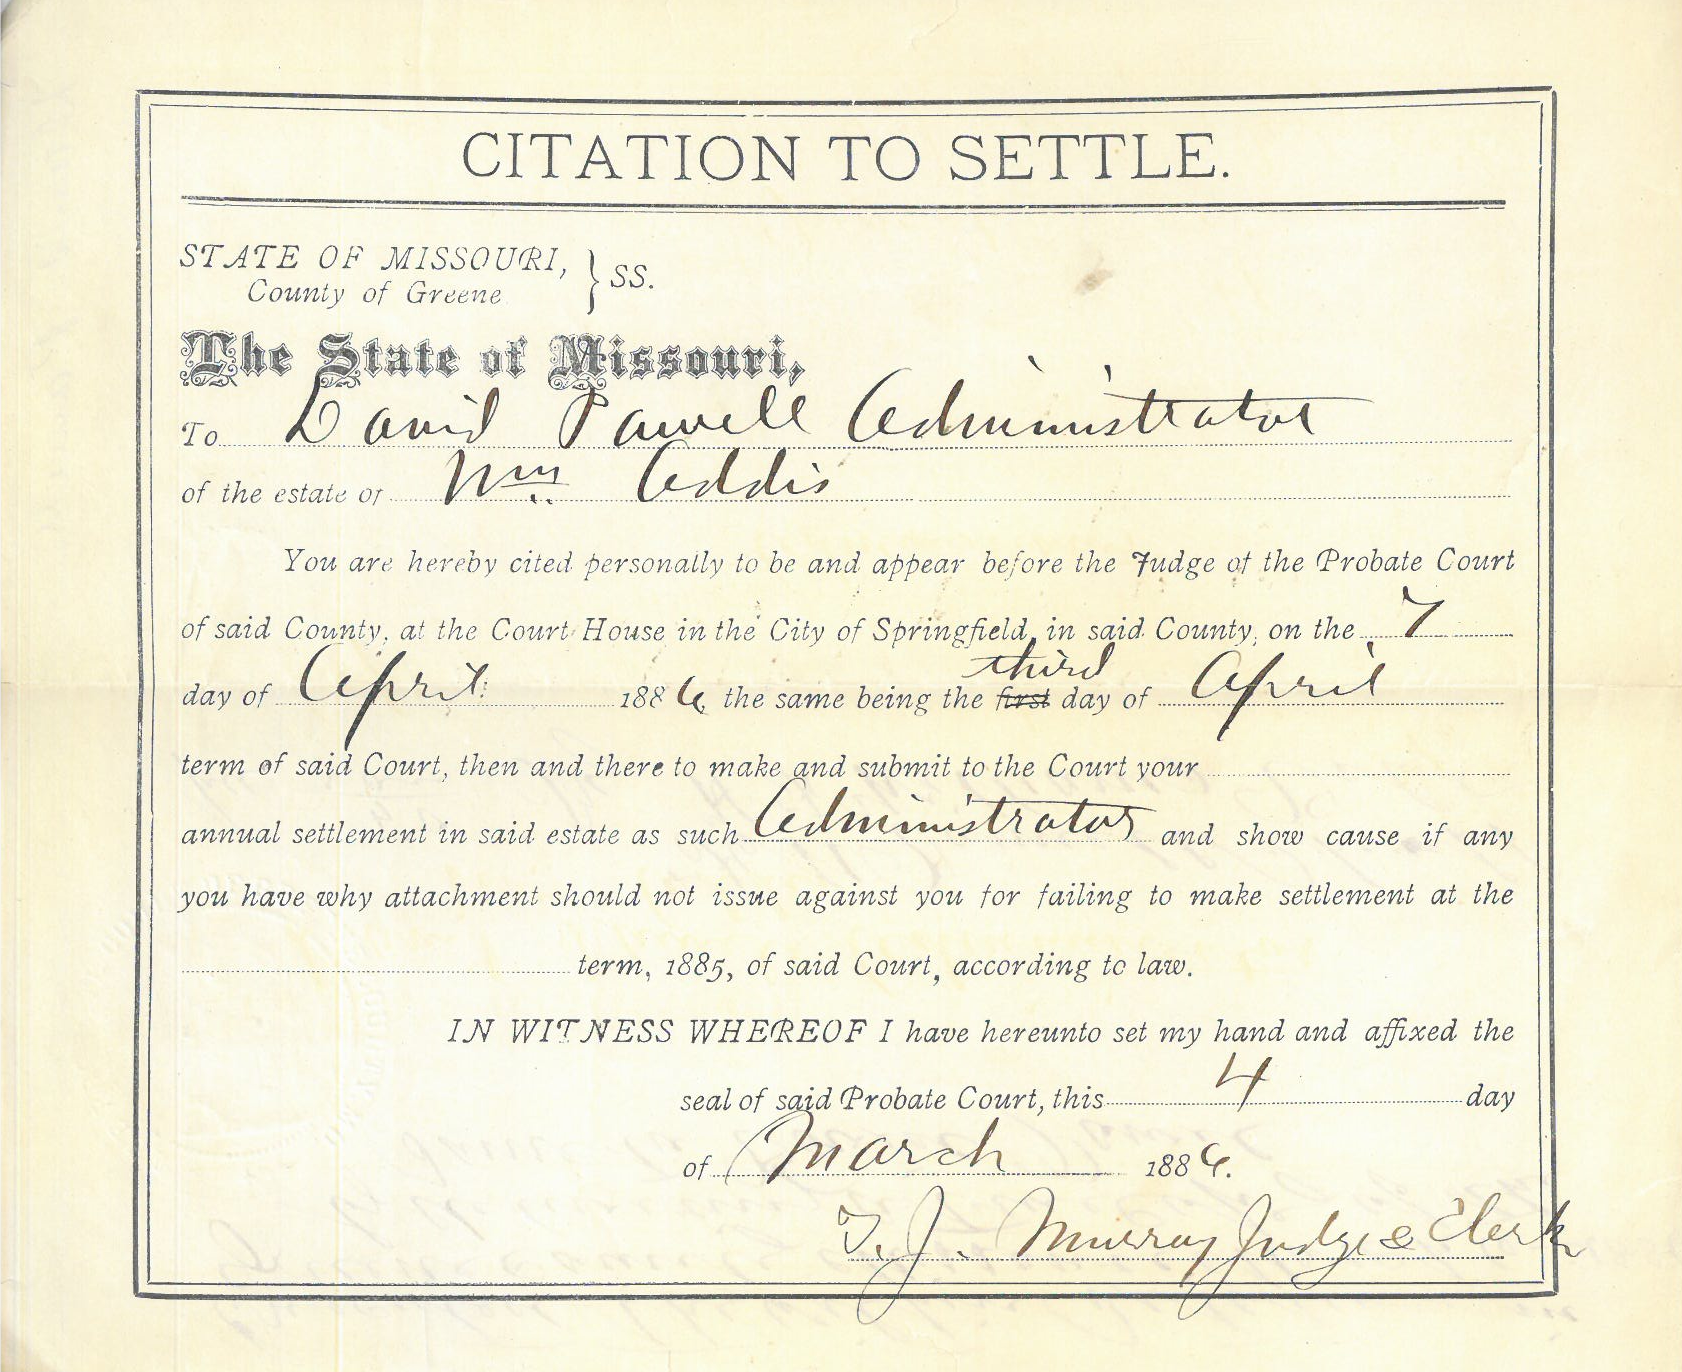 CITATION TO SETTLE.
STATE OF MISSOURI, } SS.
County of Greene
The State of Missouri,
To David Powell Administrator
of the estate of Wm Addis
You are hereby cited personally to be and appear before the Judge of the Probate Court
of said County, at the Court House in the City of Springfield, in said County, on the 7
third
day of April 1886, the same being the first day of April
term of said Court, then and there to make and submit to the Court your
annual settlement in said estate as such Administrator and show cause if any
you have why attachment should not issue against you for failing to make settlement at the
term, 1885, of said Court, according to law.
IN WITNESS WHEREOF I have hereunto set my hand and affixed the
seal of said Probate Court, this 4 day
of March 1886.
T. J. Murray Judge & Clerk